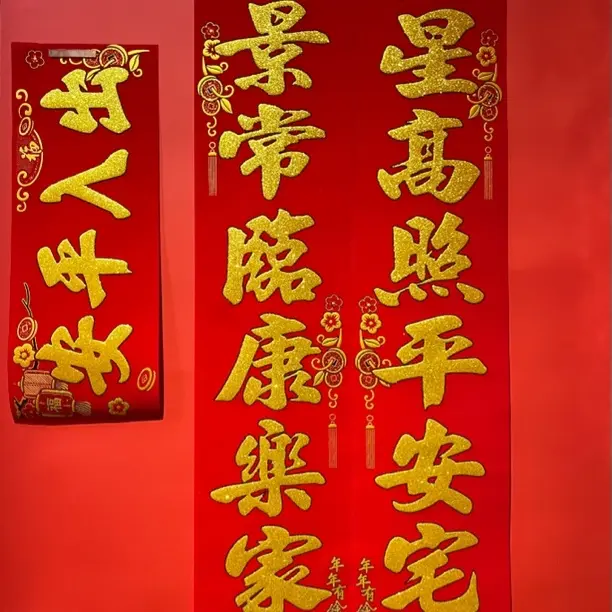 星高照平安宅
景常臨康樂家
出入平安
年年有
年年有
福